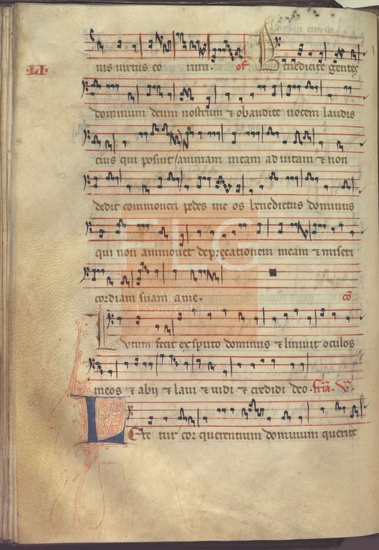 nis uirtus eo rum. of Benedicite gentes
.LI.
dominum deum nostrum & obaudite uocem laudis
eius qui posuit animam meam ad uitam & non
dedit commoueri pedes me os benedictus dominus
qui non ammouet deprecationem meam & miseri
cordiam suam a me. cō
Lutum fecit ex sputo dominus & liniuit oculos
meos & abij & laui & uidi & credidi deo. fr̄ia. VI.
Lete tur cor querentium dominum querite